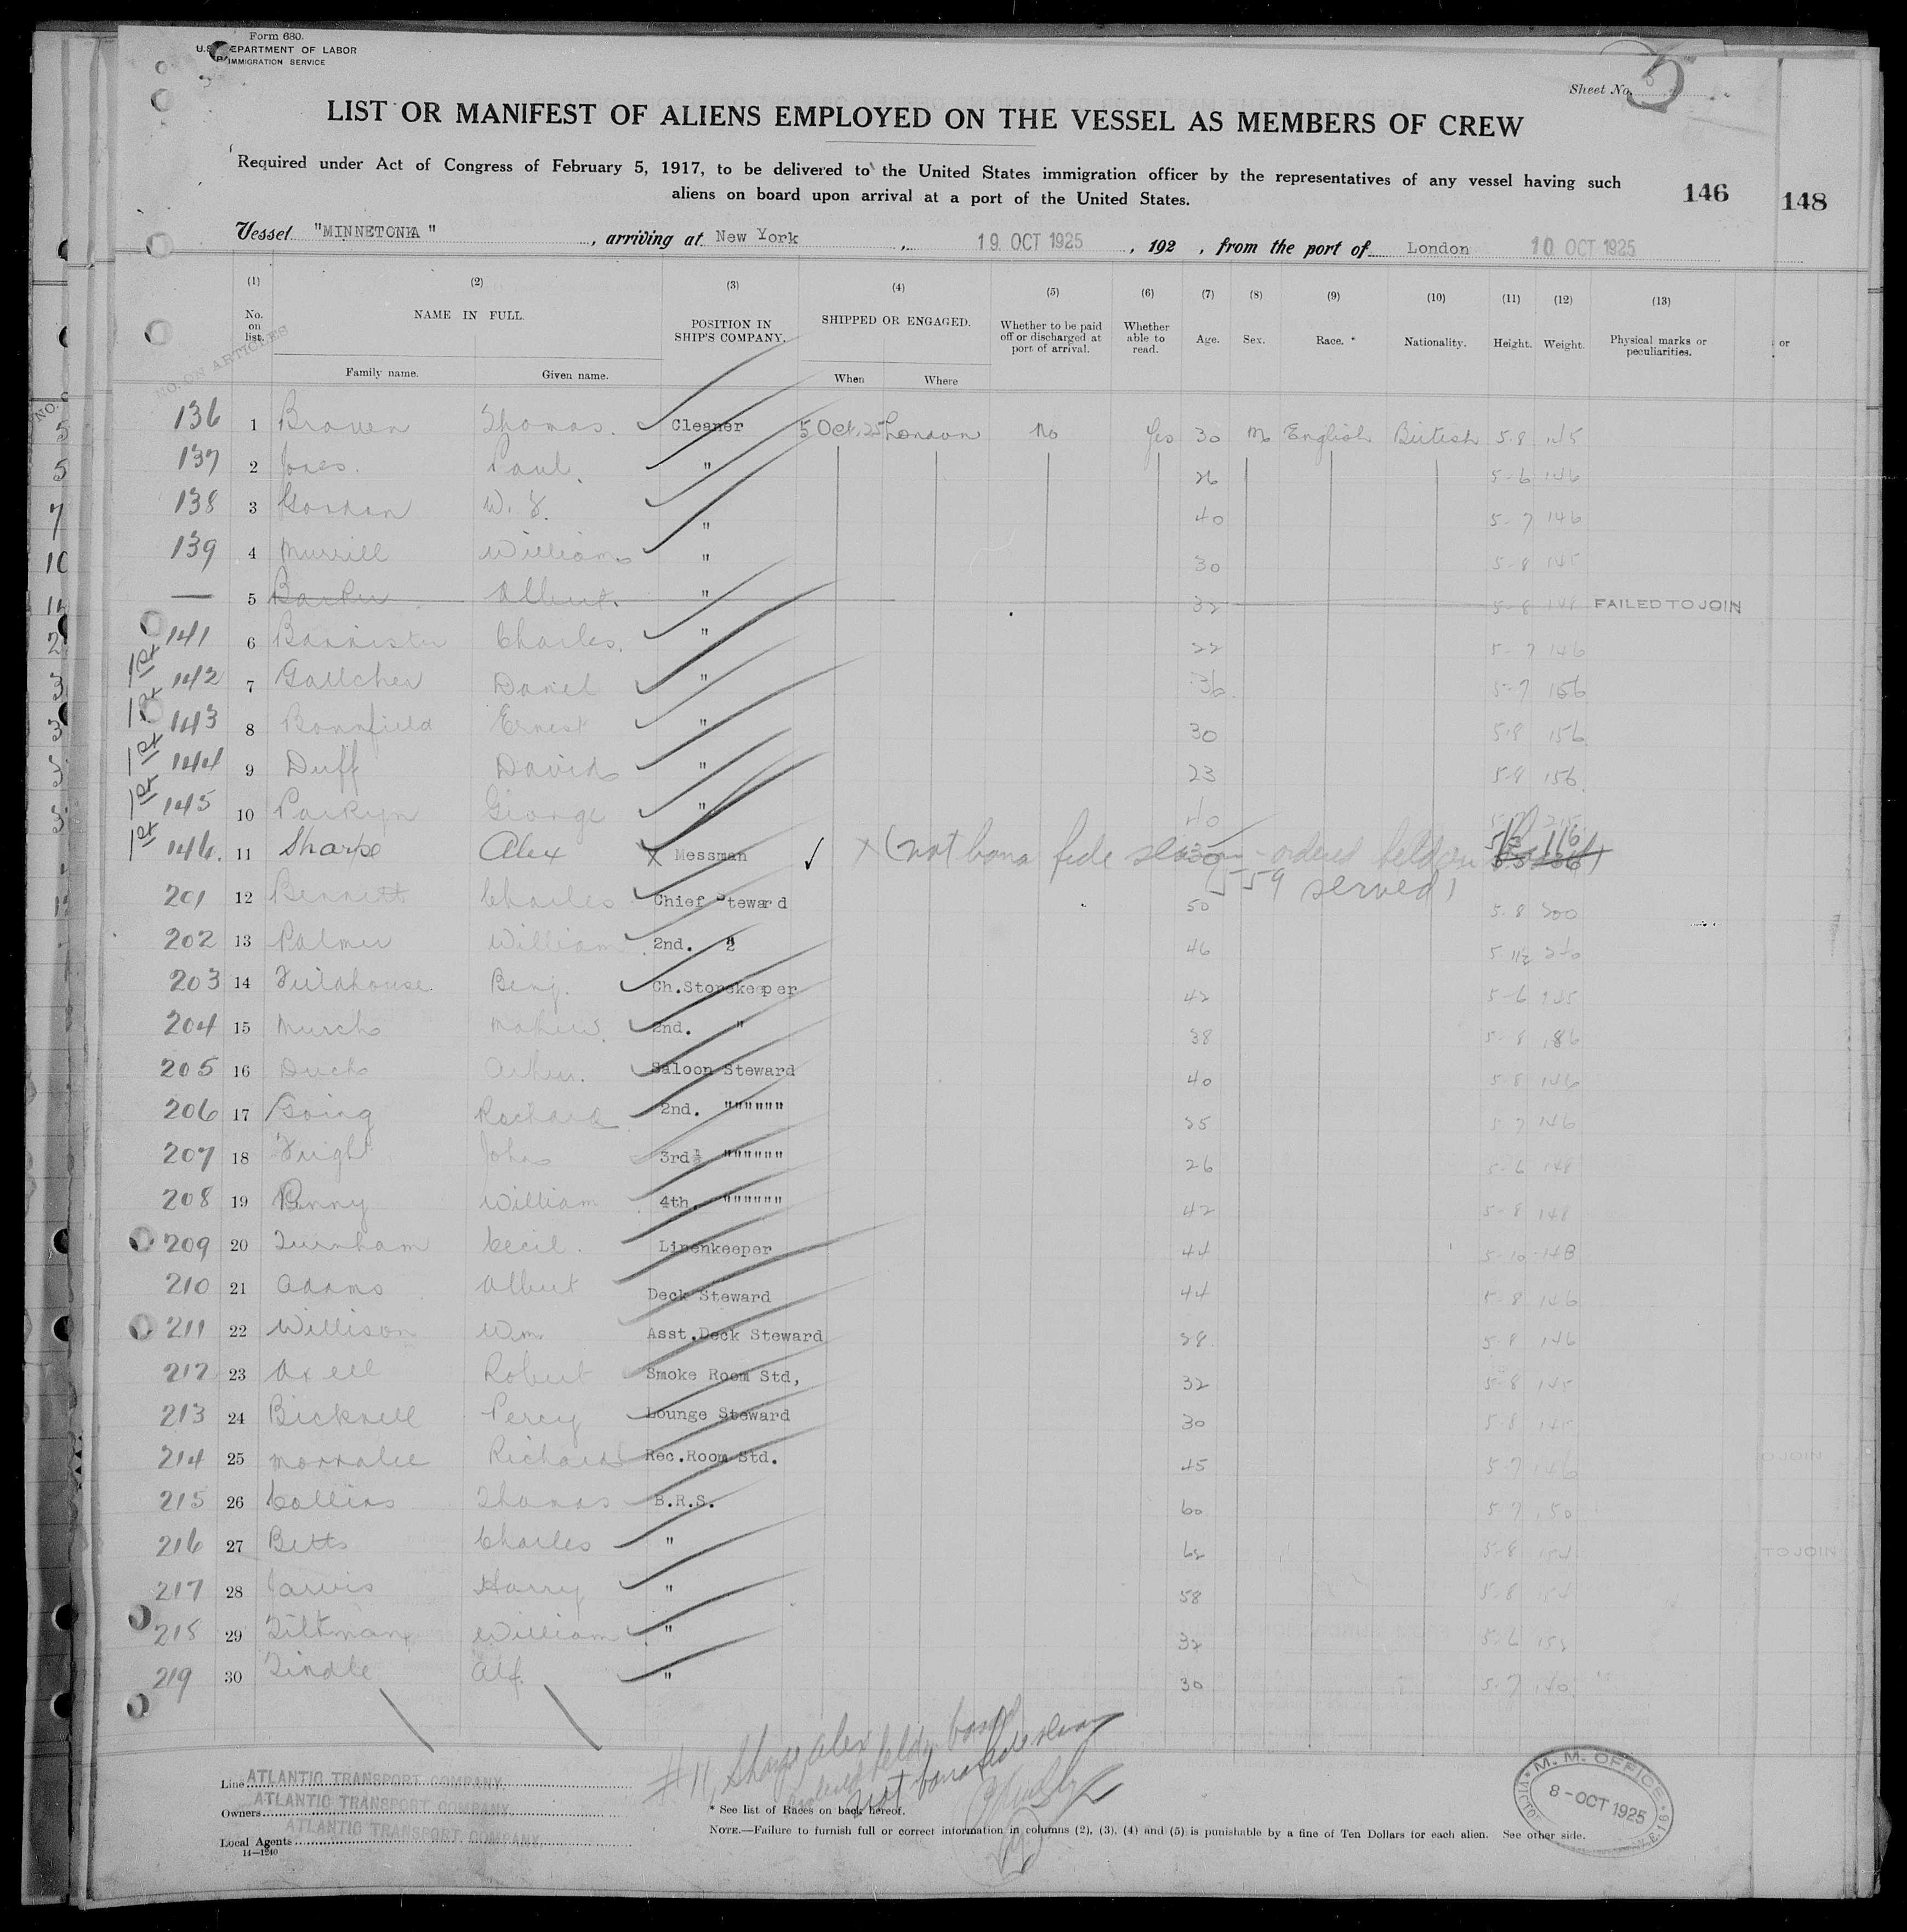 Form 680.
U.S. DEPARTMENT OF LABOR
IMMIGRATION SERVICE
Sheet No. 5
LIST OR MANIFEST OF ALIENS EMPLOYED ON THE VESSEL AS MEMBERS OF CREW
Required under Act of Congress of February 5, 1917, to be delivered to the United States immigration officer by the representatives of any vessel having such
aliens on board upon arrival at a port of the United States.
146
148
Vessel "MINNETONKA", arriving at New York, 19 OCT 1925, 192 , from the port of London 10 OCT 1925
(1) (2) (3) (4) (5) (6) (7) (8) (9) (10) (11) (12) (13)
No. on list. NAME IN FULL. POSITION IN SHIP'S COMPANY. SHIPPED OR ENGAGED. Whether to be paid off or discharged at port of arrival. Whether able to read. Age. Sex. Race.* Nationality. Height. Weight. Physical marks or peculiarities. or
Family name. Given name. When Where
NO. ON ARTICLES
136 1 Brown Thomas. Cleaner 5 Oct, 25 London No Yes 30 M English British 5-8 145
137 2 Jones. Paul. " 26 5-6 146
138 3 Gordon W. " 40 5-7 146
139 4 Murrill William " 30 5-8 145
— 5 Barker Albert. " 32 5-8 148 FAILED TO JOIN
141 6 Bannister Charles. " 22 5-7 146
1st 142 7 Gallcher Daniel " 36 5-7 156
1st 143 8 Bonnfield Ernest " 30 5-8 156
1st 144 9 Duff David " 23 5-8 156
1st 145 10 Parkyn George " 40
1st 146. 11 Sharpe Alex X Messman X (not bona fide seaman - ordered held on board) 116
559 served)
201 12 Bennett Charles Chief Steward 50 5-8 200
202 13 Palmer William 2nd. " 46 5-11½ 210
203 14 Fieldhouse Benj. Ch.Storekeeper 42 5-6
204 15 Murch Mathew. 2nd. " 38 5-8 186
205 16 Duck Arthur. Saloon Steward 40 5-8 146
206 17 Going Richard 2nd. """""" 25 5-7 146
207 18 John 3rd """""" 26 5-6 148
208 19 Penny William 4th. """""" 42 5-8 148
209 20 Turnham Cecil. Linenkeeper 44 5-10 148
210 21 Adams Albert Deck Steward 44 5-8 146
211 22 Willison Wm. Asst.Deck Steward 28 5-8 146
212 23 Axell Robert Smoke Room Std, 32 5-8 145
213 24 Bicknell Percy Lounge Steward 30 5-8 145
214 25 Morralee Richard Rec.Room Std. 45 5-7 146
215 26 Collins Thomas B.R.S. 60 5-7 150
216 27 Betts Charles " 62 5-8 154
217 28 Jarvis Harry " 58 5-8 154
218 29 Tiltman William " 32 5-6
219 30 Tindle Alf. " 30 5-7 140
TO JOIN
# 11, Sharpe Alex
ordered held on board
not bona fide seaman
Line ATLANTIC TRANSPORT COMPANY
Owners ATLANTIC TRANSPORT COMPANY
Local Agents ATLANTIC TRANSPORT COMPANY
14—1240
* See list of Races on back hereof.
NOTE.—Failure to furnish full or correct information in columns (2), (3), (4) and (5) is punishable by a fine of Ten Dollars for each alien. See other side.
M. M. OFFICE
8 - OCT 1925